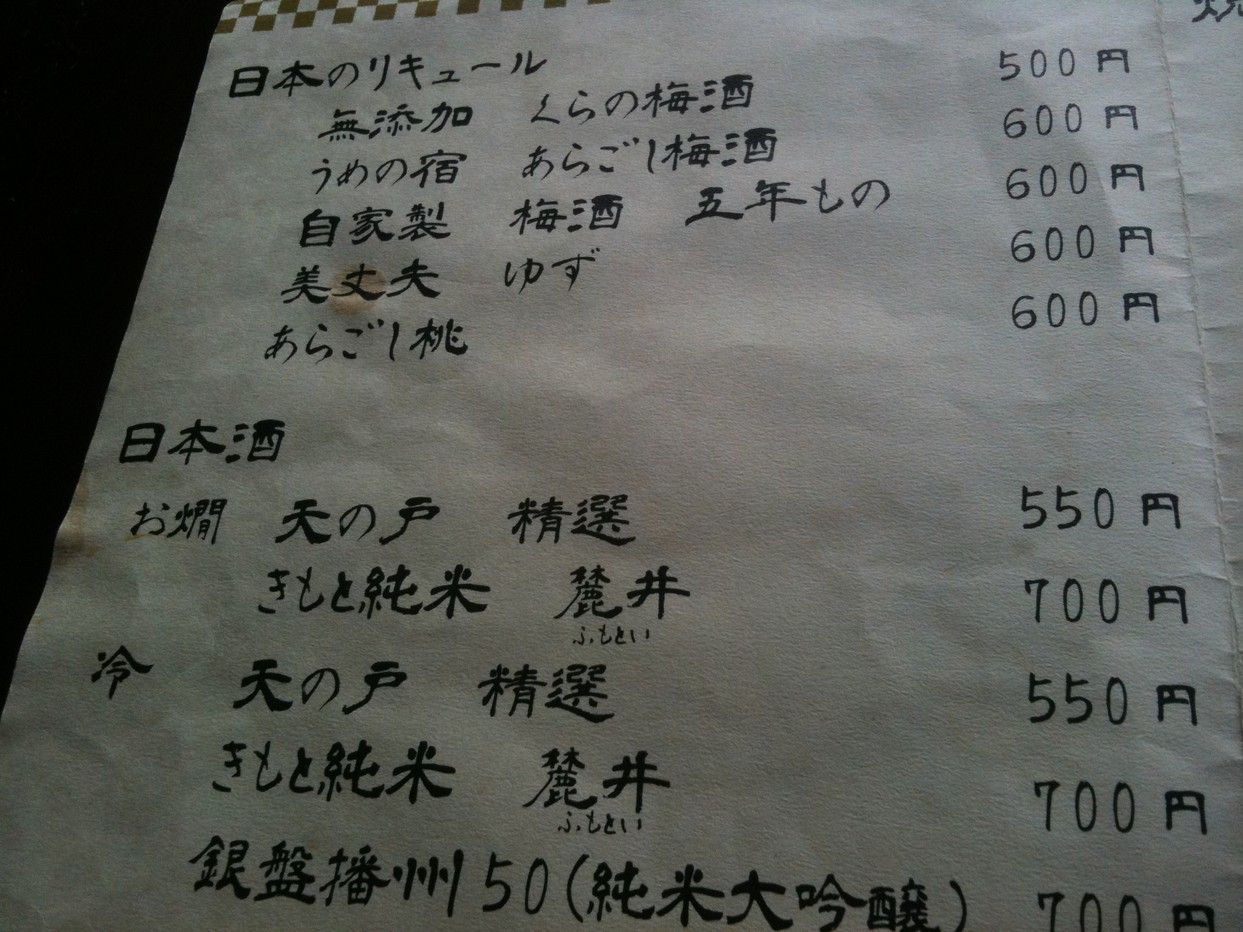 日本のリキュール
無添加 くらの梅酒 500円
うめの宿 あらごし梅酒 600円
自家製 梅酒 五年もの 600円
美丈夫 ゆず 600円
あらごし桃 600円
日本酒
お燗 天の戸 精選 550円
きもと純米 麓井 700円
ふもとい
冷 天の戸 精選 550円
きもと純米 麓井 700円
ふもとい
銀盤播州50(純米大吟醸) 700円